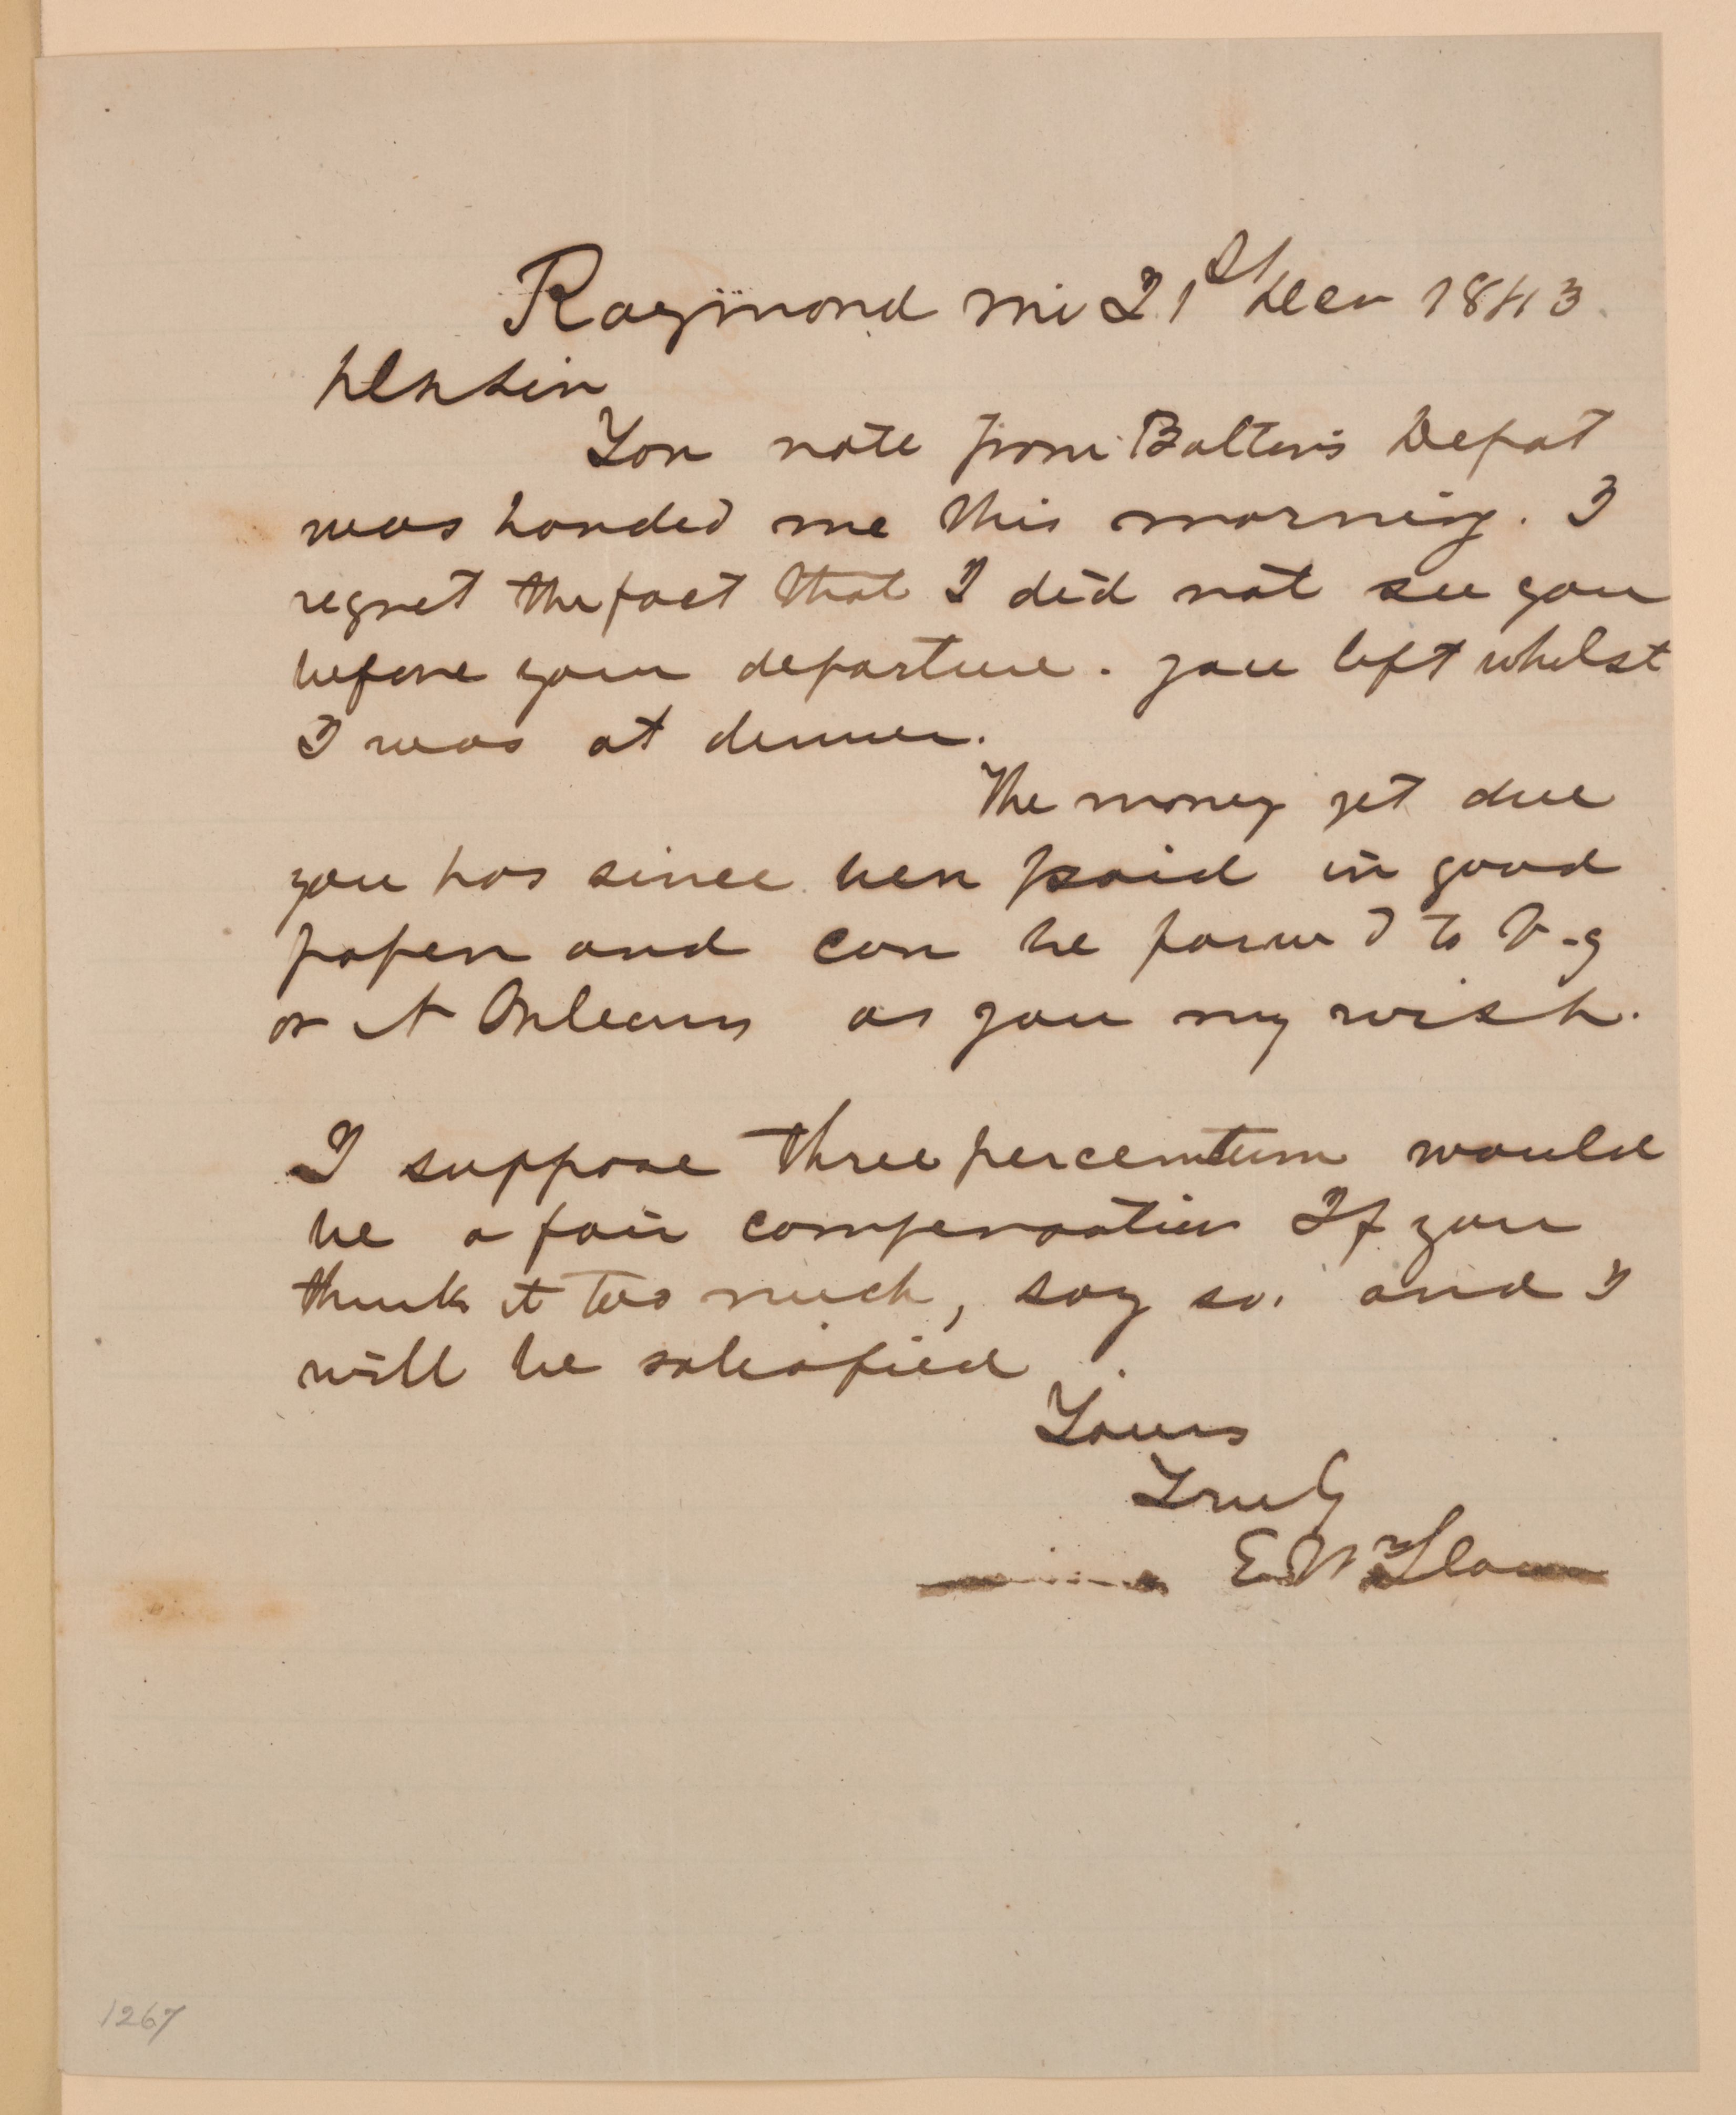 Raymond Mi 21st Decr 1843
Dr Sir
Your note from Bolton's Depot
was handed me this morning. I
regret the fact that I did not see you
before your departure. you left whilst
I was at dinner.
The money yet due
you has since been paid in good
paper and can be forwd to V-g
or N Orleans as you my wish.
I suppose three per centum would
be a fair compensation If you
think it too much, say so. and I
will be satisfied.
Yours
Truly
1267